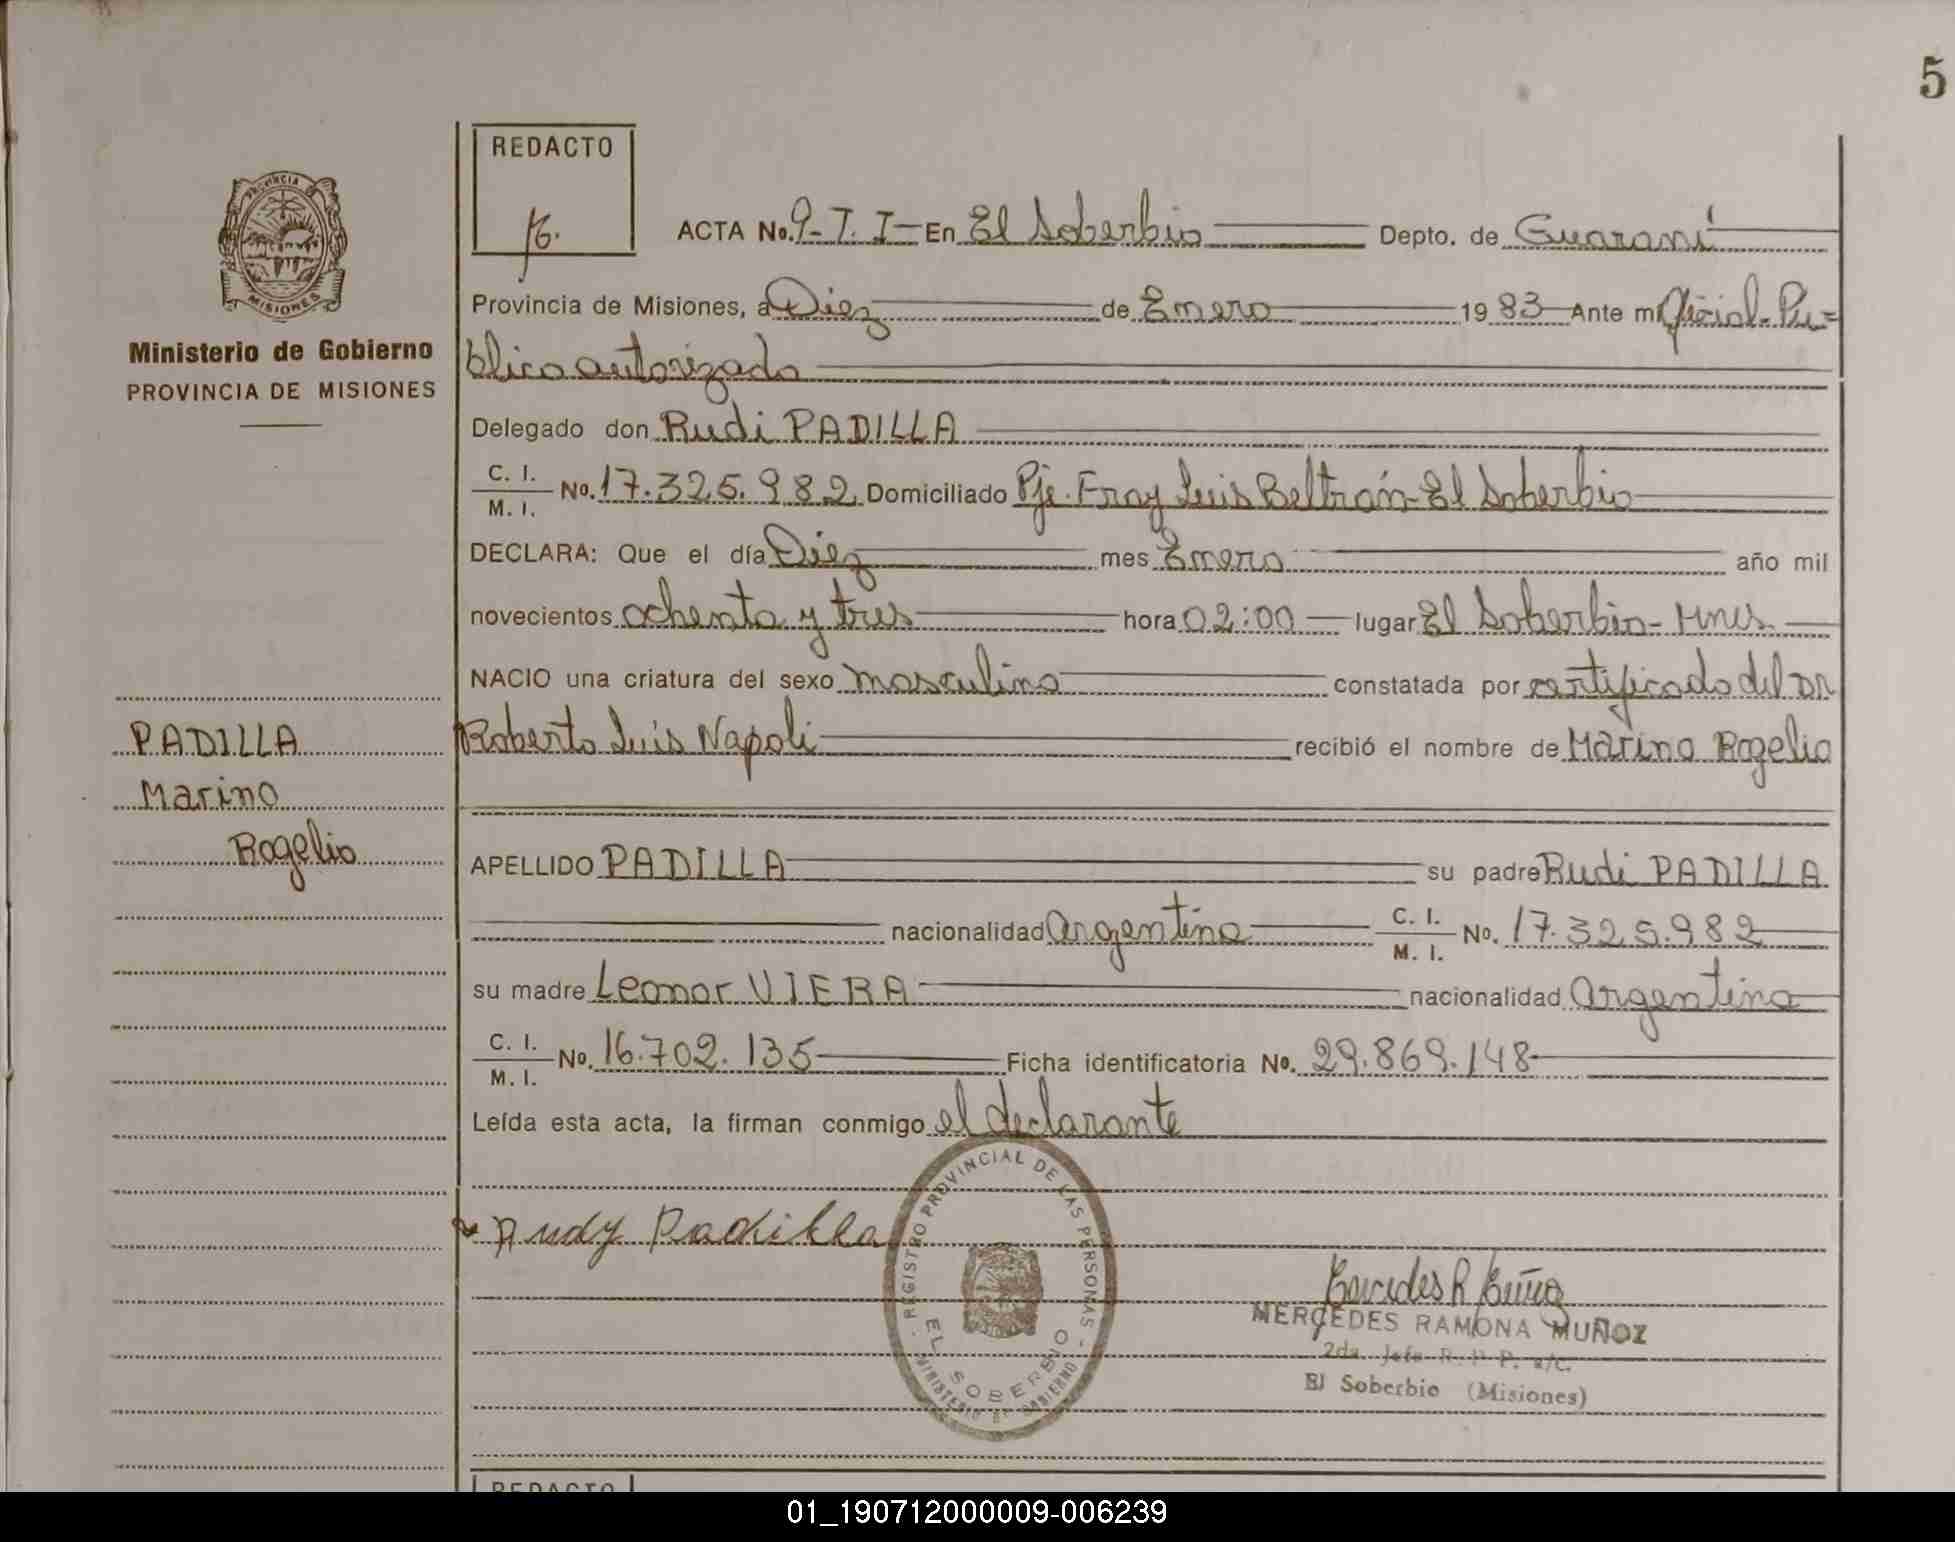 5
REDACTO
PROVINCIA
MISIONES
Ministerio de Gobierno
PROVINCIA DE MISIONES
ACTA No. 9-T. I- En El Soberbio Depto. de Guaraní
Provincia de Misiones, a Diez de Enero 19 83 Ante mi Oficial Pu=
blico autorizado
Delegado don Rudi PADILLA
C. I.
M. I. No. 17.325.982 Domiciliado Pje. Fray Luis Beltrán-El Soberbio
DECLARA: Que el día Diez mes Enero año mil
novecientos ochenta y tres hora 02:00 lugar El Soberbio- Mnes
NACIO una criatura del sexo masculino constatada por certificado del DR
Roberto Luis Napoli recibió el nombre de Marino Rogelio
PADILLA
Marino
Rogelio
APELLIDO PADILLA su padre Rudi PADILLA
nacionalidad Argentina C. I.
M. I. No. 17.325.982
su madre Leonor VIERA nacionalidad Argentina
C. I.
M. I. No. 16.702.135 Ficha identificatoria No. 29.869.148
Leída esta acta, la firman conmigo el declarante
Rudy Padilla
REGISTRO PROVINCIAL DE LAS PERSONAS
EL SOBERBIO
MINISTERIO DE GOBIERNO
MERCEDES RAMONA MUÑOZ
2da. Jefe R. P. P. a/c.
El Soberbio (Misiones)
REDACTO
01_190712000009-006239